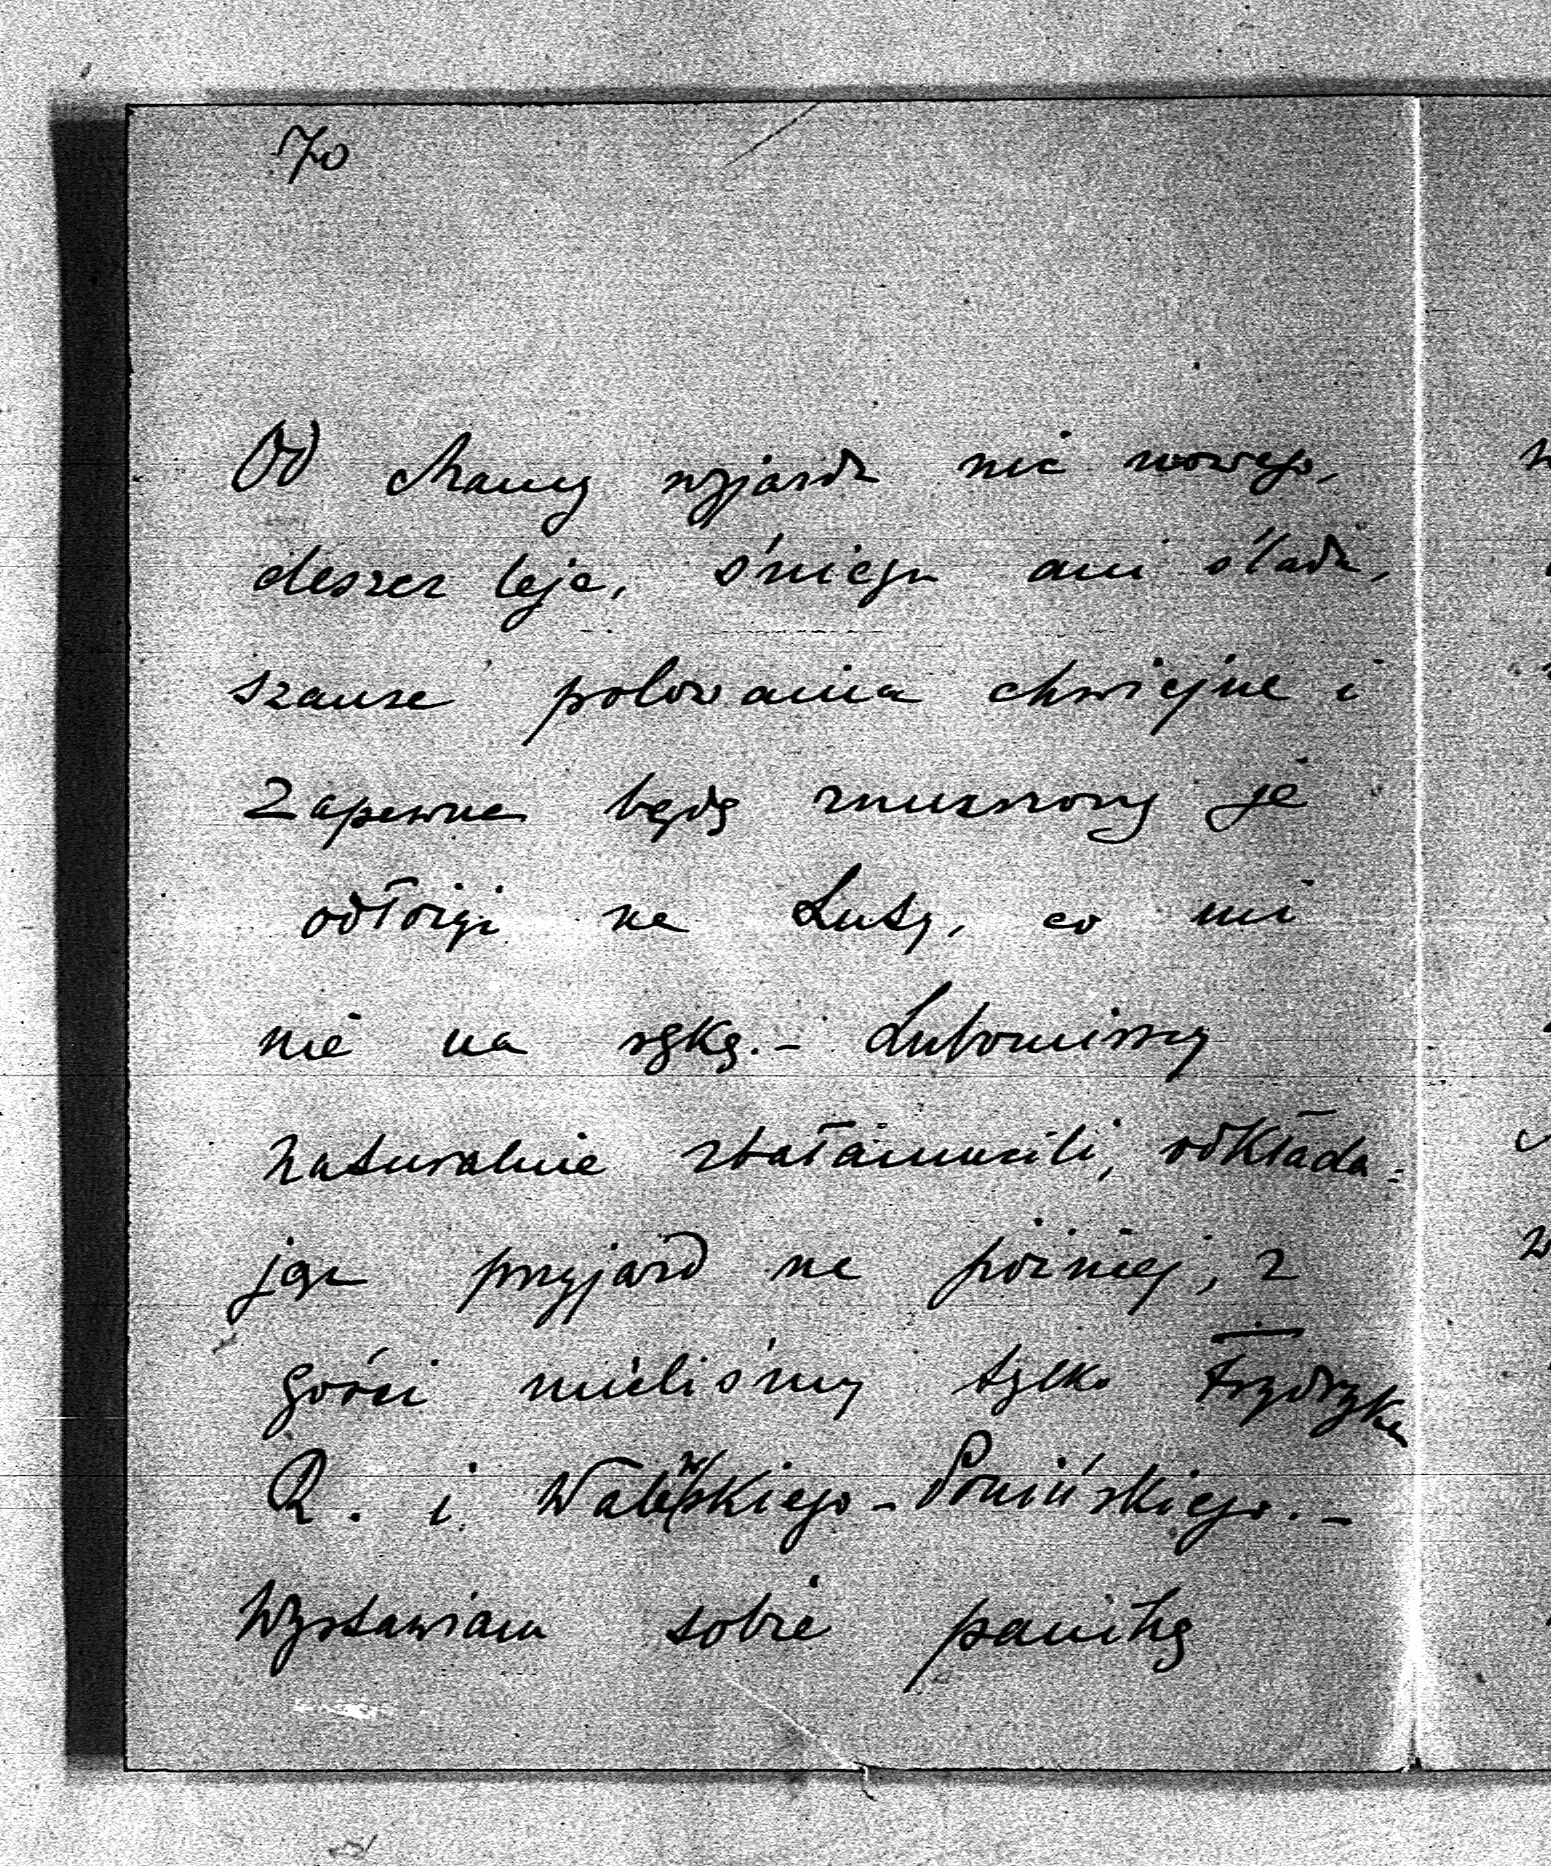 70
Od Mamy wyjazdu nic nowego,
deszcz leje, śniegu ani śladu,
szanse polowania chwiejne i
zapewne będę zmuszony je
odłożyć na Luty, co mi
nie na rękę. – Lubomirscy
naturalnie zbałamucili, odkłada=
jąc przyjazd na później, z
gości mieliśmy tylko Frydryka
R. i Walewskiego – Ponińskiego. –
Wystawiam sobie panikę